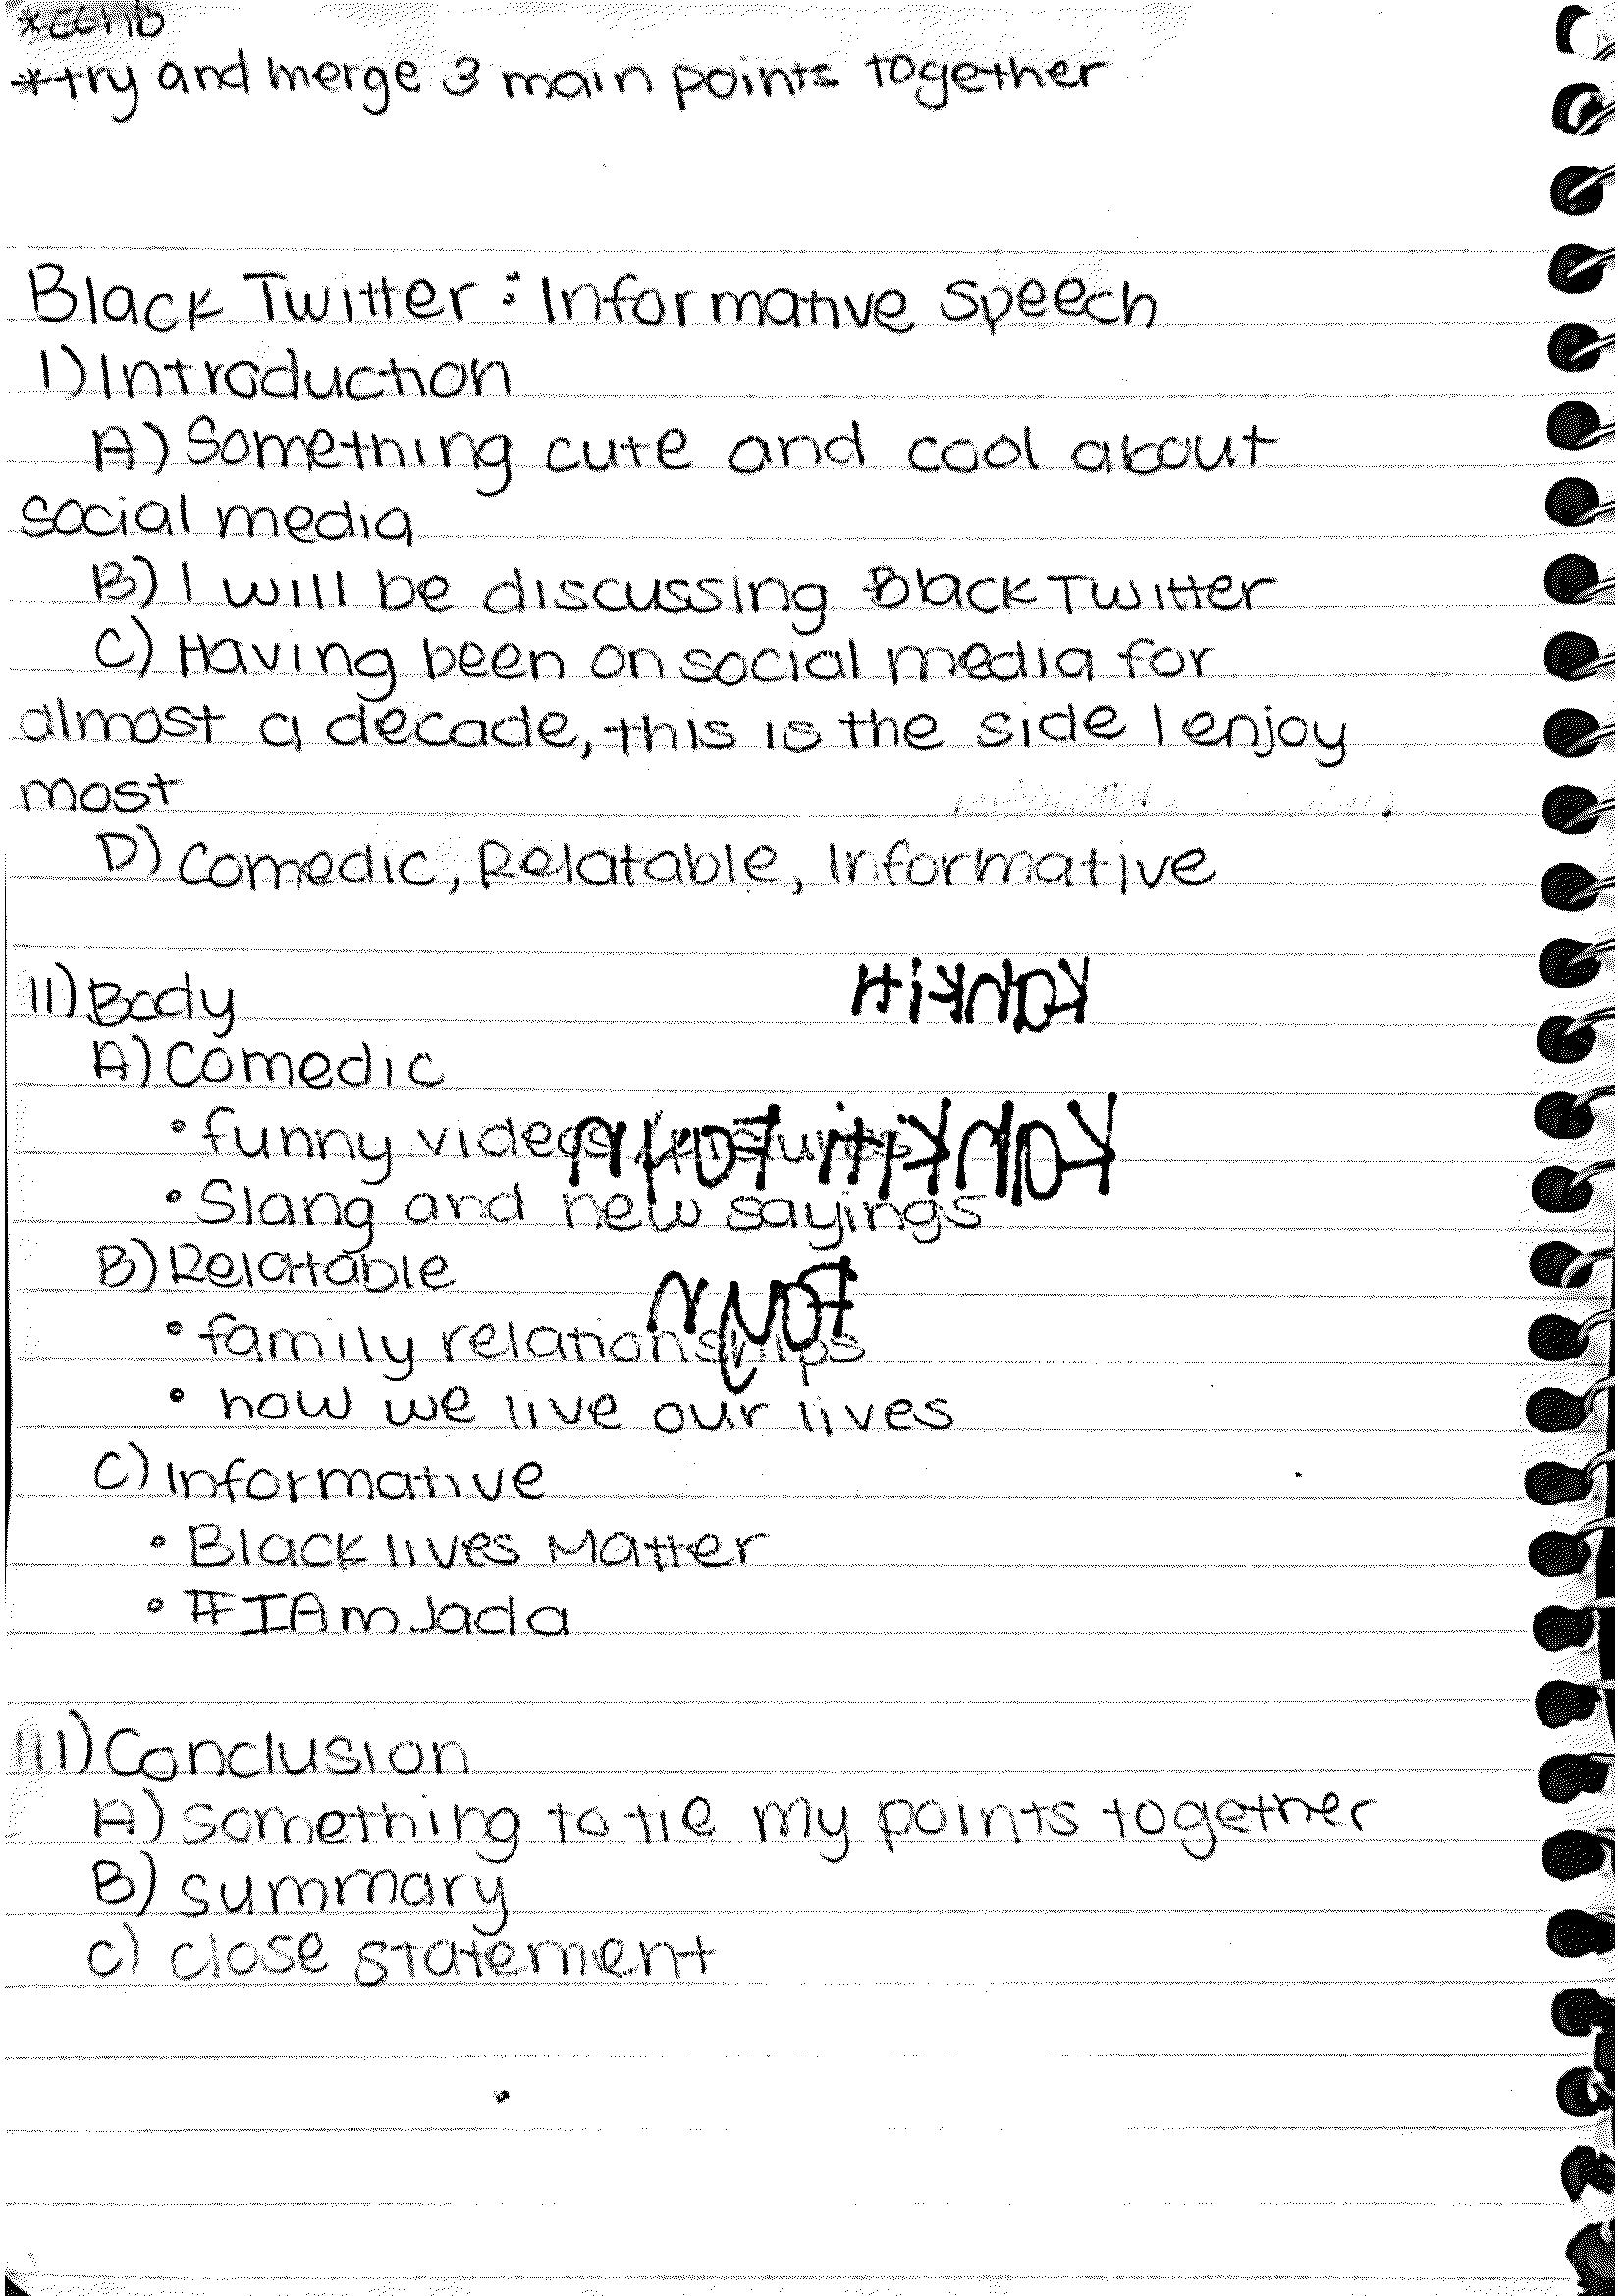 *try and merge 3 main points together
Black Twitter : Informative Speech
I) Introduction
A) Something cute and cool about
social media
B) I will be discussing Black Twitter
C) Having been on social media for
almost a decade, this is the side I enjoy
most
D) Comedic, Relatable, Informative
II) Body
A) Comedic
• funny videos/pictures
• Slang and new sayings
B) Relatable
• family relationships
• how we live our lives
C) Informative
• Black lives Matter
• #IAmJada
III) Conclusion
A) Something to tie my points together
B) Summary
C) Close statement